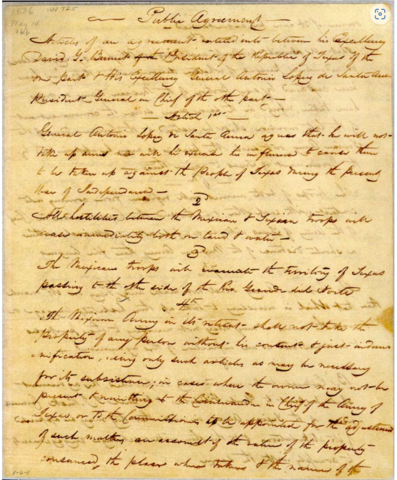 1836
May 14
Public Agreement
Articles of an agreement entered into between his Excellency
David G. Burnet President of the Republic of Texas of the
one part & His Excellency General Antonio Lopez de Santa Anna
President General in Chief of the other part—
Article 1st
General Antonio Lopez de Santa Anna agrees that he will not
take up arms nor will he exercise his influence to cause them
to be taken up against the People of Texas during the present
War of Independence—
2d
All hostilities between the Mexican & Texian troops will
cease immediately both on land & water—
3d
The Mexican troops will evacuate the territory of Texas
passing to the other side of the Rio Grande del Norte
4th
The Mexican Army in its retreat shall not take the
property of any person without his consent & just indem-
nification, using only such articles as may be necessary
for its subsistence, in cases where the owner may not be
present & remitting to the Commander in Chief of the Army of
Texas or to the Commissioners to be appointed for the adjustment
of such matters an account of the value of the property
consumed, the place where taken & the name of the